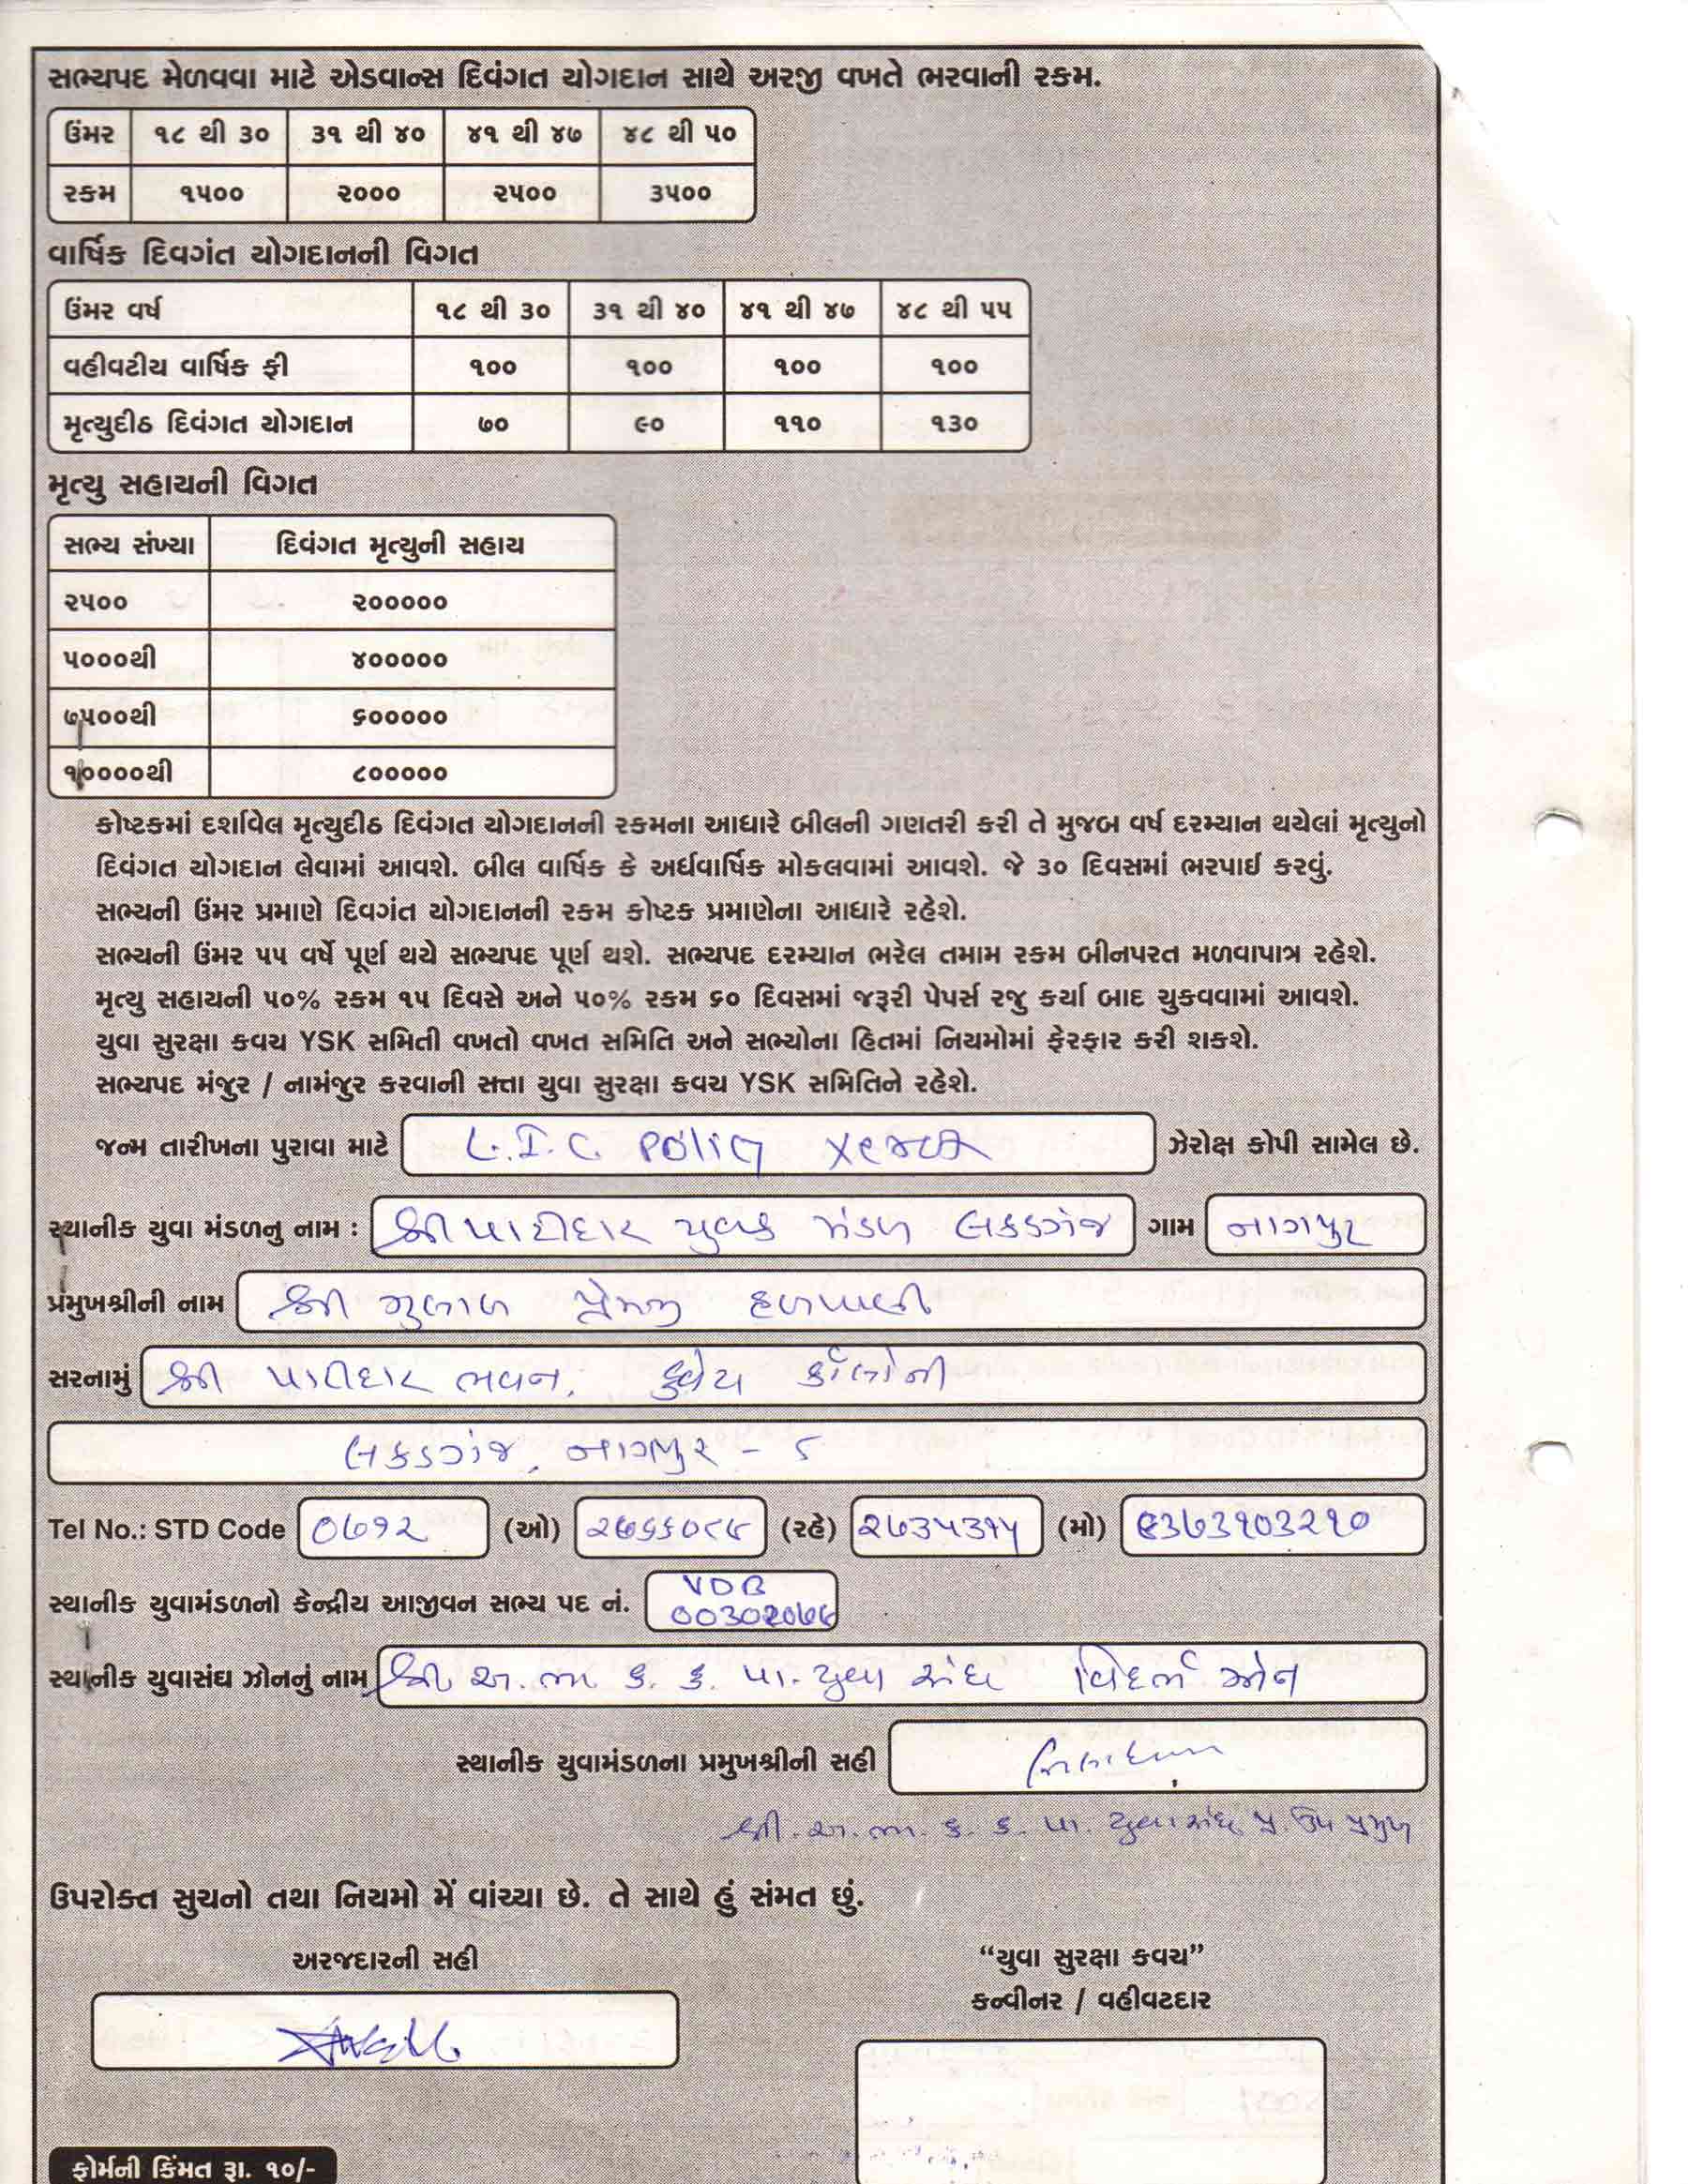 સભ્યપદ મેળવવા માટે એડવાન્સ દિવંગત યોગદાન સાથે અરજી વખતે ભરવાની રકમ.
ઉંમર ૧૮ થી ૩૦ ૩૧ થી ૪૦ ૪૧ થી ૪૭ ૪૮ થી ૫૦
રકમ ૧૫૦૦ ૨૦૦૦ ૨૫૦૦ ૩૫૦૦
વાર્ષિક દિવગંત યોગદાનની વિગત
ઉંમર વર્ષ ૧૮ થી ૩૦ ૩૧ થી ૪૦ ૪૧ થી ૪૭ ૪૮ થી ૫૫
વહીવટીય વાર્ષિક ફી ૧૦૦ ૧૦૦ ૧૦૦ ૧૦૦
મૃત્યુદીઠ દિવંગત યોગદાન ૭૦ ૯૦ ૧૧૦ ૧૩૦
મૃત્યુ સહાયની વિગત
સભ્ય સંખ્યા દિવંગત મૃત્યુની સહાય
૨૫૦૦ ૨૦૦૦૦૦
૫૦૦૦થી ૪૦૦૦૦૦
૭૫૦૦થી ૬૦૦૦૦૦
૧૦૦૦૦થી ૮૦૦૦૦૦
કોષ્ટકમાં દર્શાવેલ મૃત્યુદીઠ દિવંગત યોગદાનની રકમના આધારે બીલની ગણતરી કરી તે મુજબ વર્ષ દરમ્યાન થયેલાં મૃત્યુનો
દિવંગત યોગદાન લેવામાં આવશે. બીલ વાર્ષિક કે અર્ધવાર્ષિક મોકલવામાં આવશે. જે ૩૦ દિવસમાં ભરપાઈ કરવું.
સભ્યની ઉંમર પ્રમાણે દિવગંત યોગદાનની રકમ કોષ્ટક પ્રમાણેના આધારે રહેશે.
સભ્યની ઉંમર ૫૫ વર્ષે પૂર્ણ થયે સભ્યપદ પૂર્ણ થશે. સભ્યપદ દરમ્યાન ભરેલ તમામ રકમ બીનપરત મળવાપાત્ર રહેશે.
મૃત્યુ સહાયની ૫૦% રકમ ૧૫ દિવસે અને ૫૦% રકમ ૬૦ દિવસમાં જરૂરી પેપર્સ રજુ કર્યા બાદ ચુકવવામાં આવશે.
યુવા સુરક્ષા કવચ YSK સમિતી વખતો વખત સમિતિ અને સભ્યોના હિતમાં નિયમોમાં ફેરફાર કરી શકશે.
સભ્યપદ મંજુર / નામંજુર કરવાની સત્તા યુવા સુરક્ષા કવચ YSK સમિતિને રહેશે.
જન્મ તારીખના પુરાવા માટે L.I.C. Policy ઝેરોક્ષ કોપી સામેલ છે.
સ્થાનીક યુવા મંડળનુ નામ : શ્રી પાટીદાર યુવક મંડળ લકડગંજ ગામ નાગપુર
પ્રમુખશ્રીની નામ શ્રી ગુલાબ પ્રેમજી
સરનામું શ્રી પાટીદાર ભવન, ક્વેટા કૉલોની
લકડગંજ, નાગપુર - ૮
Tel No.: STD Code ૦૭૧૨ (ઓ) (રહે) ૨૭૩૫૩૧૫ (મો) ૯૩૭૩૧૦૩૨૧૦
સ્થાનીક યુવામંડળનો કેન્દ્રીય આજીવન સભ્ય પદ નં. VDB
સ્થાનીક યુવાસંઘ ઝોનનું નામ શ્રી અ.ભા. ક. ક. પા. યુવા સંઘ વિદર્ભ ઝોન
સ્થાનીક યુવામંડળના પ્રમુખશ્રીની સહી
શ્રી. અ. ભા. ક. ક. પા. યુવા સંઘ પૂ. ઉપ પ્રમુખ
ઉપરોક્ત સુચનો તથા નિયમો મેં વાંચ્યા છે. તે સાથે હું સંમત છું.
અરજદારની સહી
“યુવા સુરક્ષા કવચ”
કન્વીનર / વહીવટદાર
ફોર્મની કિંમત રૂા. ૧૦/-